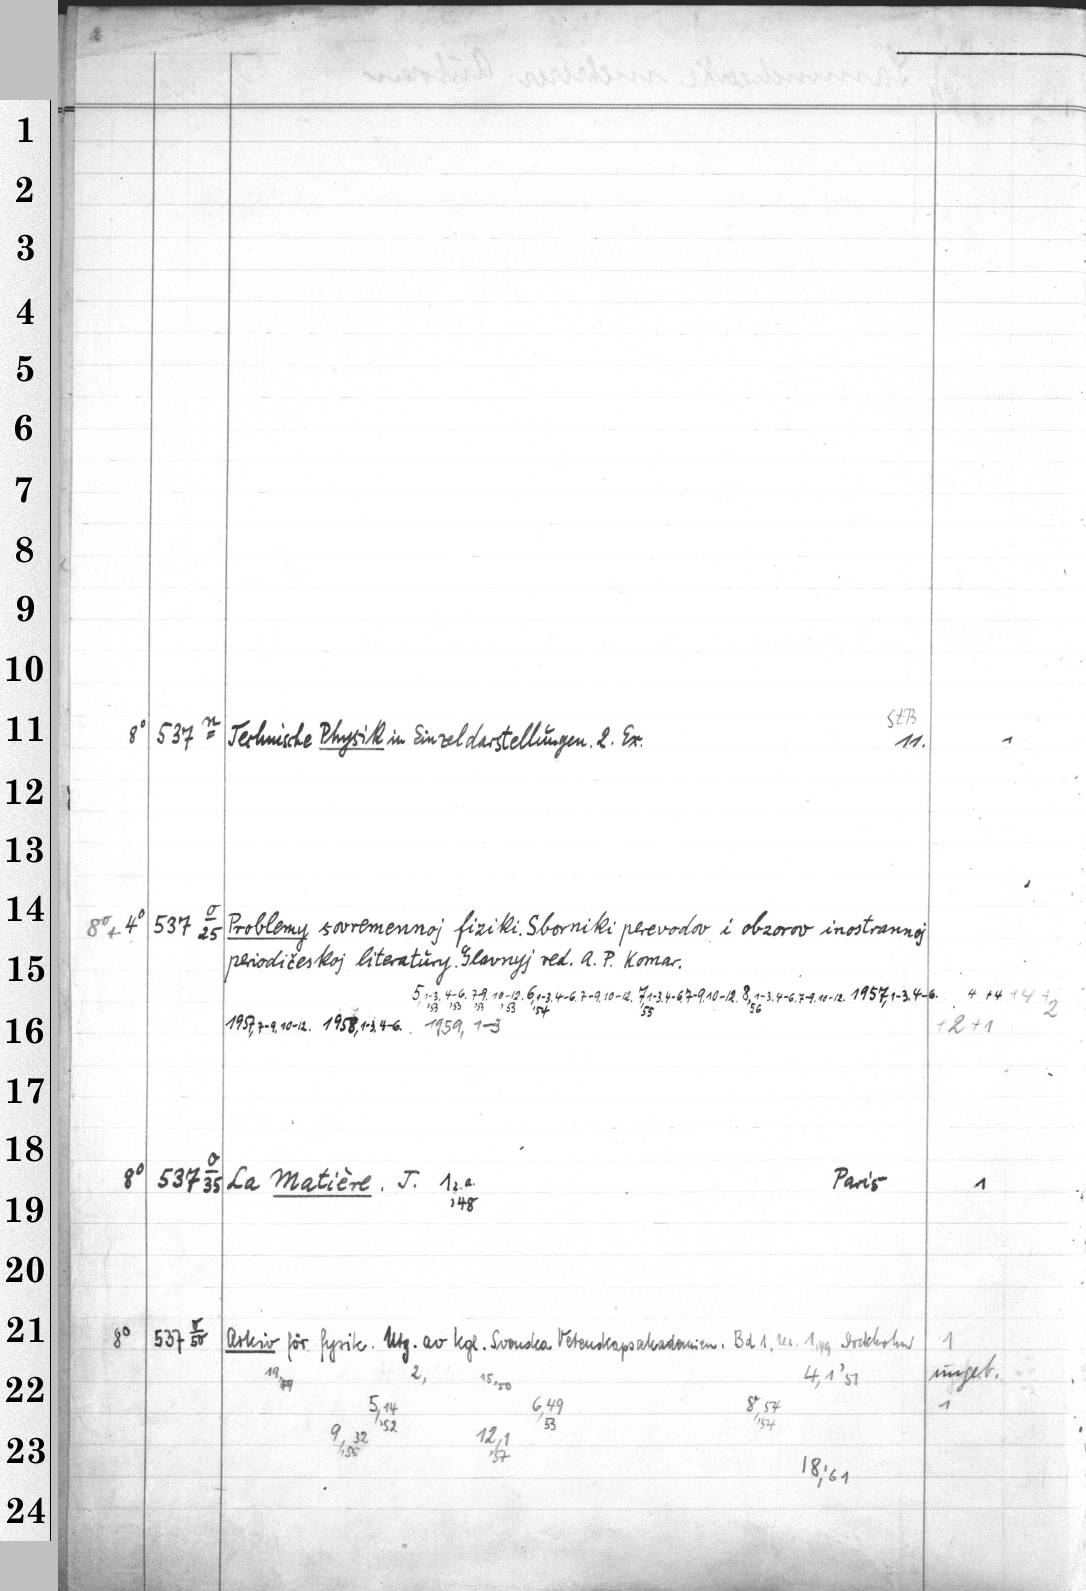 1
2
3
4
5
6
7
8
9
10
StB
11 8° 537 n Technische Physik in Einzeldarstellungen. 2. Ex. 11. 1
12
13
14 8°+ 4° 537 σ/25 Problemy sovremennoj fiziki. Sborniki perevodov i obzorov inostrannoj
15 periodičeskoj literatury. Glavnyj red. A. P. Komar.
5,1-3. 4-6. 7-9. 10-12. 6,1-3. 4-6. 7-9. 10-12. 7,1-3. 4-6 7-9. 10-12. 8,1-3. 4-6. 7-9. 10-12. 1957,1-3. 4-6. 4 +4 +4 +2
,53 ,53 ,53 ,53 ,54 ,55 ,56
16 1957,7-9. 10-12. 1958,1-3. 4-6. 1959, 1-3 +2 +1
17
18
8° 537 σ/35 La Matière. T. 1 Paris 1
19 ,48
20
21 8° 537 σ/50 Arkiv för fysik. Utg. av kgl. Svenska Vetenskapsakademien. Bd 1, 1,49 Stockholm 1
22 19,49 2, 15,50 4,1 '51 ungeb.
5,14 ,52 6,49 ,53 8,54 ,54 1
23 9,32 12,1 ,57
18, '61
24